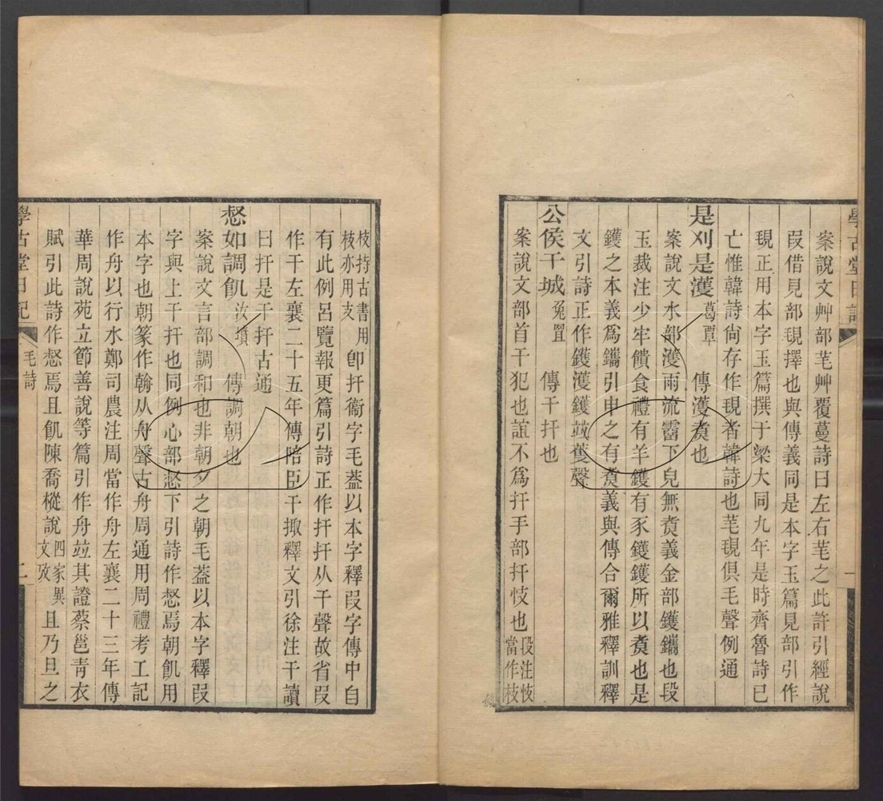 學古堂日記
案說文艸部芼艸覆蔓詩曰左右芼之此許引經說
叚借見部覒擇也與傳義同是本字玉篇見部引作
覒正用本字玉篇撰于梁大同九年是時齊魯詩已
亡惟韓詩尙存作覒者韓詩也芼覒俱毛聲例通
是刈是濩葛覃 傳濩煑也
案說文水部濩雨流霤下皃無煑義金部鑊鑴也段
玉裁注少牢饋食禮有羊鑊有豕鑊鑊所以煑也是
鑊之本義爲鑴引申之有煑義與傳合爾雅釋訓釋
文引詩正作鑊濩鑊竝蒦聲
公侯干城兔罝 傳干扞也
案說文部首干犯也誼不爲扞手部扞忮也段注忮當作枝
枝持古書用枝亦用支卽扞衞字毛葢以本字釋叚字傳中自
有此例呂覽報更篇引詩正作扞扞从干聲故省叚
作干左襄二十五年傳陪臣干掫釋文引徐注干讀
曰扞是干扞古通
惄如調飢汝墳 傳調朝也
案說文言部調和也非朝夕之朝毛葢以本字釋叚
字與上干扞也同例心部惄下引詩作惄焉朝飢用
本字也朝篆作翰从舟聲古舟周通用周禮考工記
作舟以行水鄭司農注周當作舟左襄二十三年傳
華周說苑立節善說等篇引作舟竝其證蔡邕青衣
賦引此詩作惄焉且飢陳喬樅說四家異文攷且乃旦之
學古堂日記 毛詩 二